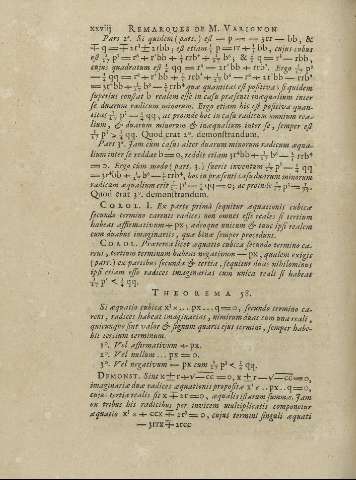 xxviij REMARQUES DE M. VARIGNON
Pars 2ª. Si quidem (part.) est — p = — 3rr — bb, &
∓ q = ∓ 2r³ ± 2rbb, est etiam ⅓ p = rr + ⅓ bb, cujus cubus
est 1/27 p³ = r⁶ + r⁴bb + ⅓ rrb⁴ + 1/27 b⁶; & ½ q = r³ — rbb,
cujus quadratum est ¼ qq = r⁶ — 2r⁴bb + rrb⁴. Ergo 1/27 p³
— ¼ qq = r⁶ + r⁴bb + ⅓ rrb⁴ + 1/27 b⁶ — r⁶ + 2r⁴bb — rrb⁴
= 3r⁴bb + 1/27 b⁶ — ⅔ rrb⁴ quæ quantitas est positiva; si quidem
superius constat b realem esse in casu præsenti inæqualium inter
se duarum radicum minorum. Ergo etiam hic est positiva quan-
titas 1/27 p³ — ¼ qq, ac proinde hoc in casu radicum omnium rea-
lium, & duarum minorum & inæqualium inter se, semper est
1/27 p³ > ¼ qq. Quod erat 2º. demonstrandum.
Pars 3ª. Jam cum casus alter duarum minorum radicum æqua-
lium inter se reddat b = 0, reddit etiam 3r⁴bb + 1/27 b⁶ — ⅔ rrb⁴
= 0. Ergo cùm modo (part. 2.) fuerit inventum 1/27 p³ — ¼ qq
= 3r⁴bb + 1/27 b⁶ — ⅔ rrb⁴, hoc in præsenti casu duarum minorum
radicum æqualium erit 1/27 p³ — ¼ qq = 0; ac proinde 1/27 p³ = ¼ qq.
Quod erat 3º. demonstrandum.
COROL. I. Ex parte primâ sequitur æquationis cubicæ
secundo termino carentis radices non omnes esse reales si tertium
habeat affirmativum + px; adeoque unicum & tunc ipsi realem
cum duabus imaginariis, quæ binæ semper procedunt.
COROL. Præterea licet æquatio cubica secundo termino ca-
rens, tertium terminum habeat negativum — px, qualem exigit
(part.) ex partibus secundâ & tertiâ, sequitur duas nihilominus
ipsi etiam esse radices imaginarias cum unica reali si habeat
1/27 p³ < ¼ qq.
THEOREMA 58.
Si æquatio cubica x³ * ... px ... q = 0, secundo termino ca-
rens, radices habeat imaginarias, nimirum duas cum una reali,
quicunque sint valor & signum quarti ejus termini, semper habe-
bit tertium terminum.
1º. Vel affirmativum + px.
2º. Vel nullum ... px = 0.
3º. Vel negativum — px cum 1/27 p³ < ¼ qq.
DEMONST. Sint x ± r + √—cc = 0, x ± r — √—cc = 0,
imaginariæ duæ radices æquationis propositæ x³ * .. px .. q = 0,
cujus tertia realis sit x ∓ 2r = 0, æqualis istarum summæ. Jam
ex tribus his radicibus per invicem multiplicatis componetur
æquatio x³ * + ccx ∓ 2r³ = 0, cujus termini singuli æquati
— 3rrx ∓ 2rcc